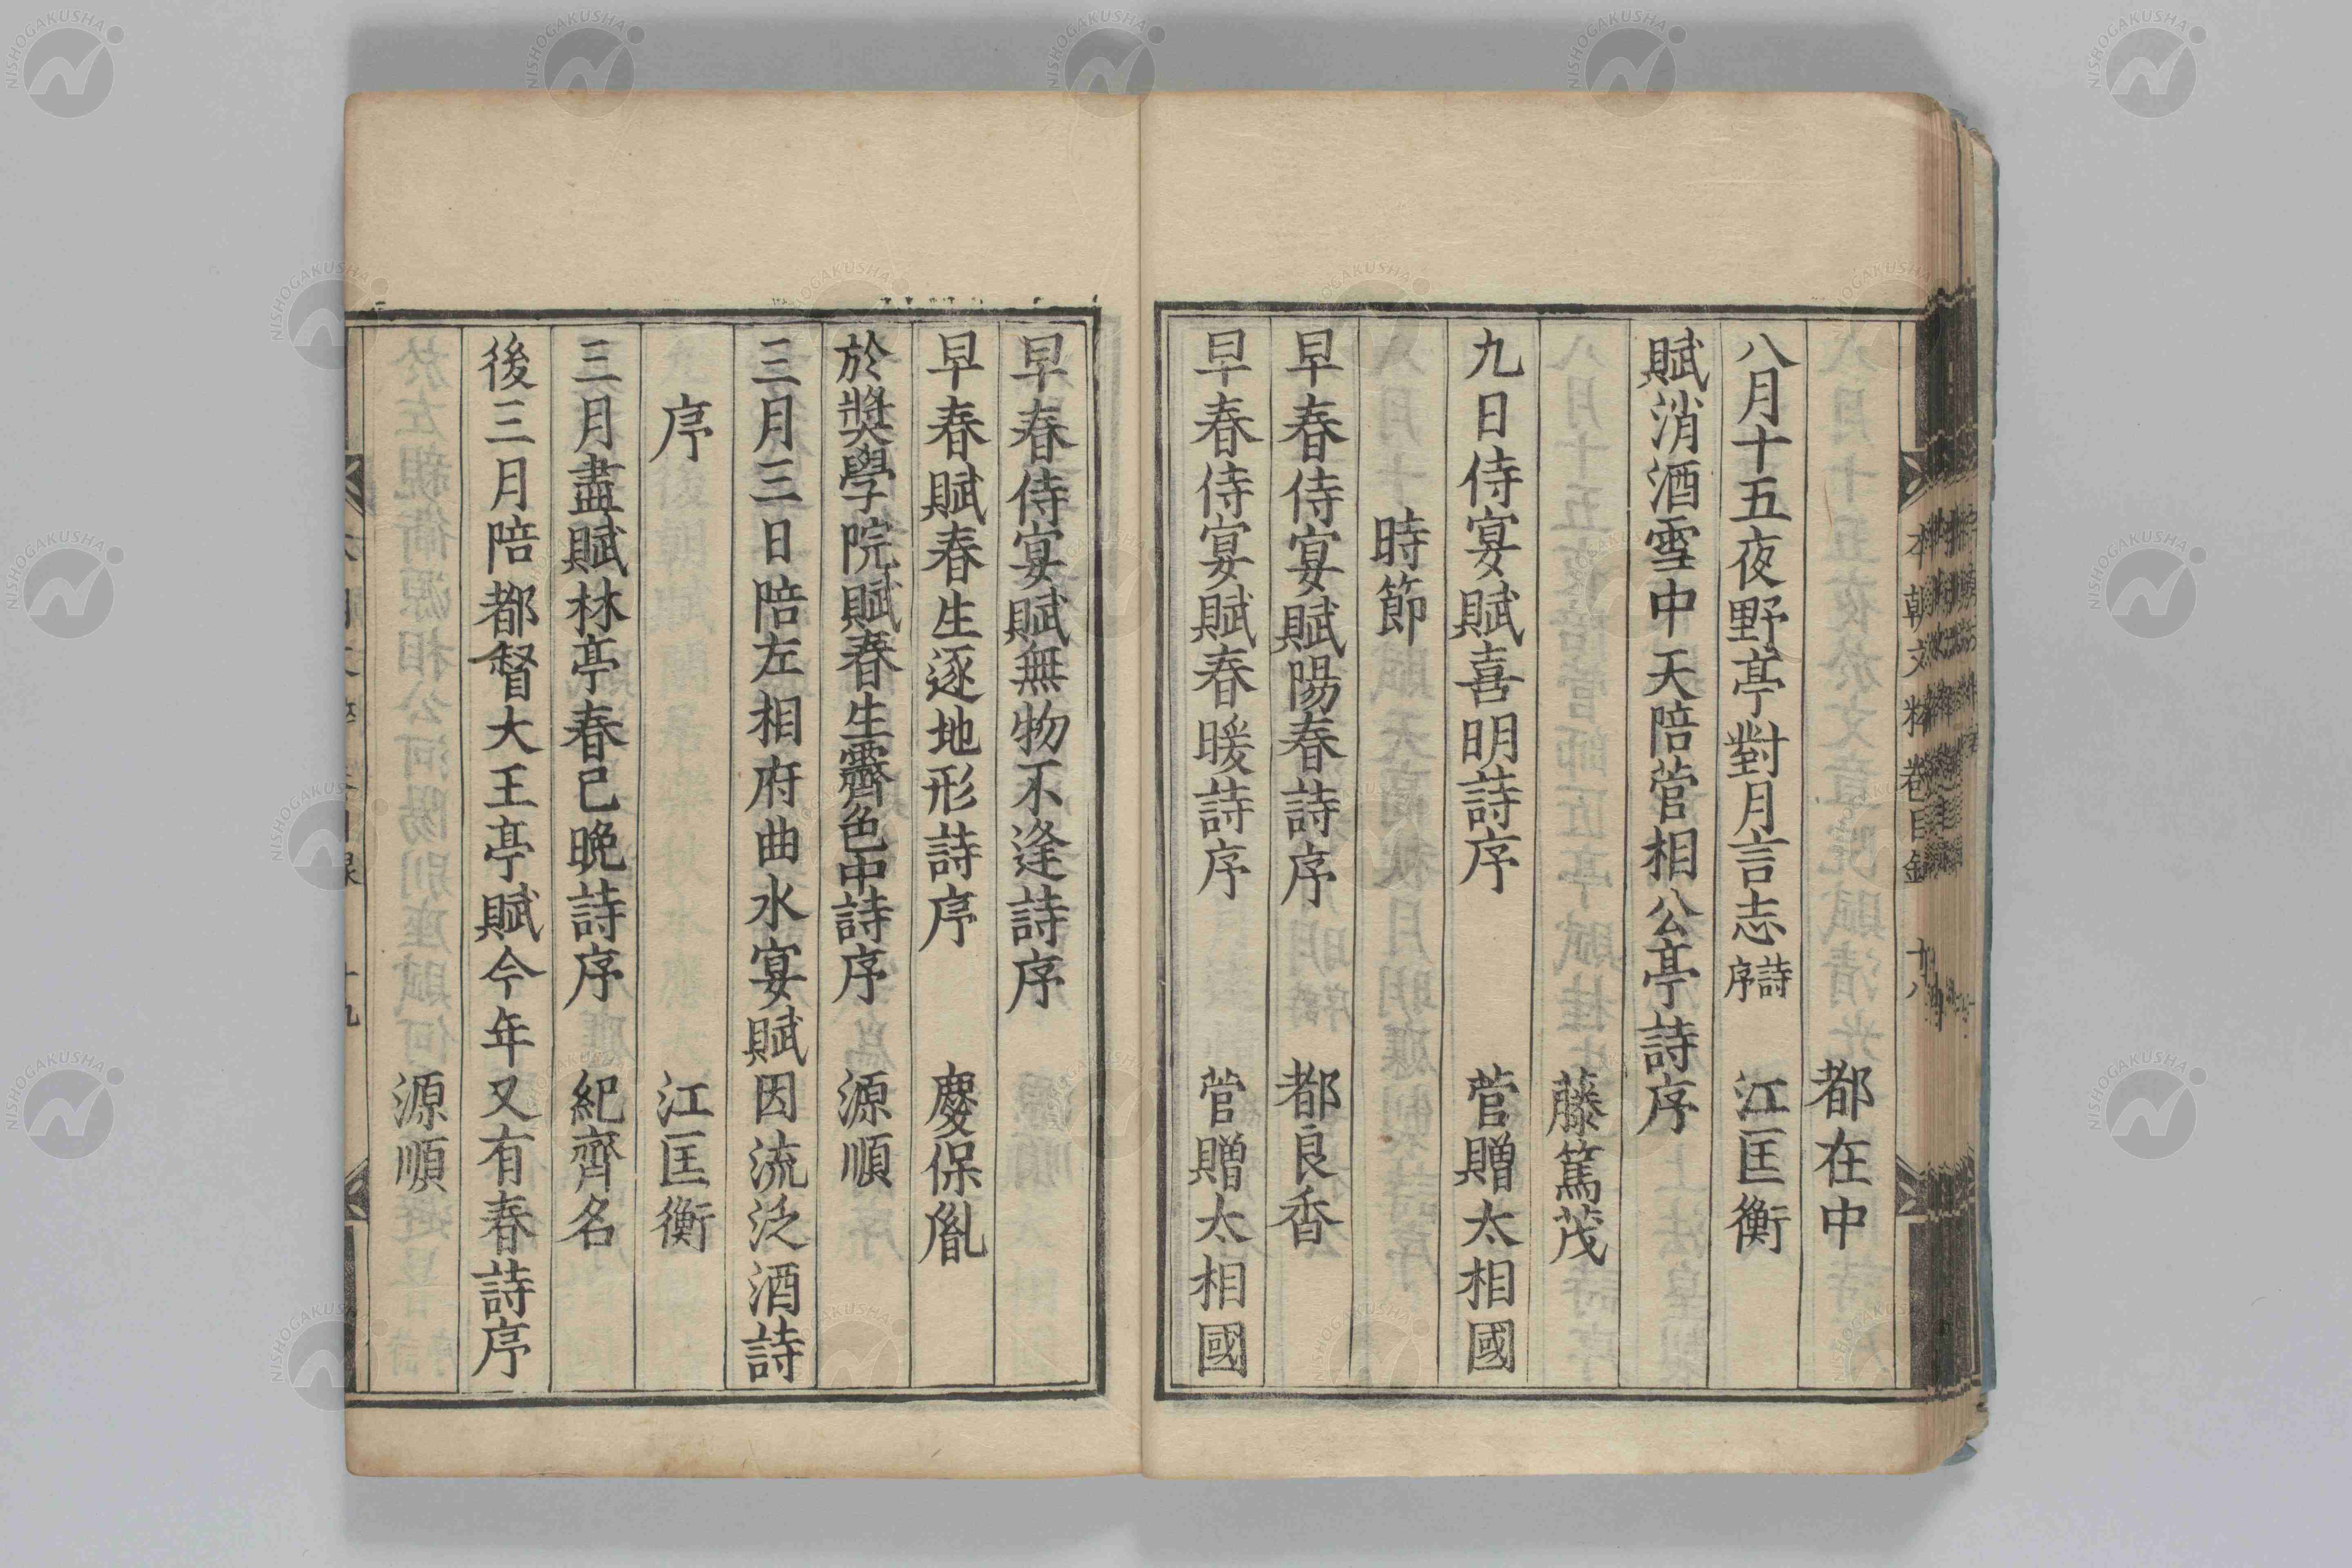 都在中
八月十五夜野亭對月言志詩序 江匡衡
賦消酒雪中天陪菅相公亭詩序
藤篤茂
九日侍宴賦喜明詩序 菅贈太相國
時節
早春侍宴賦陽春詩序 都良香
早春侍宴賦春暖詩序 菅贈太相國
本朝文粹卷目錄 十八
早春侍宴賦無物不逢詩序
早春賦春生逐地形詩序 慶保胤
於奬學院賦春生霽色中詩序 源順
三月三日陪左相府曲水宴賦因流泛酒詩
序 江匡衡
三月盡賦林亭春已晩詩序 紀齊名
後三月陪都督大王亭賦今年又有春詩序
源順
NISHOGAKUSHA